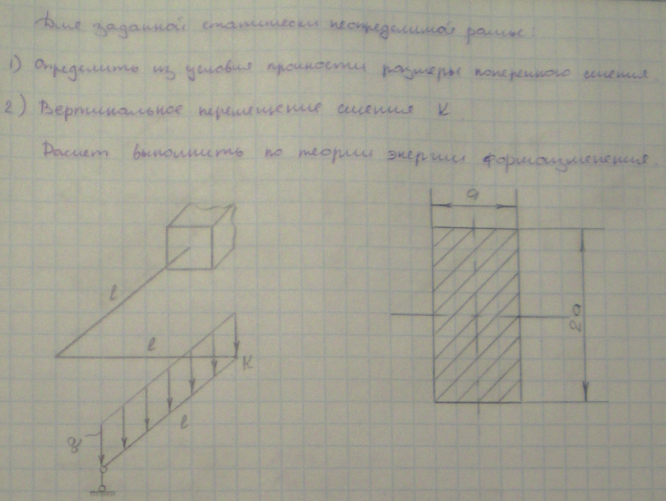 Для заданной статически неопределимой рамы:
1) Определить из условия прочности размеры поперечного сечения.
2) Вертикальное перемещение сечения К
Расчет выполнить по теории энергии формоизменения.
a
l
2a
l
К
q
l